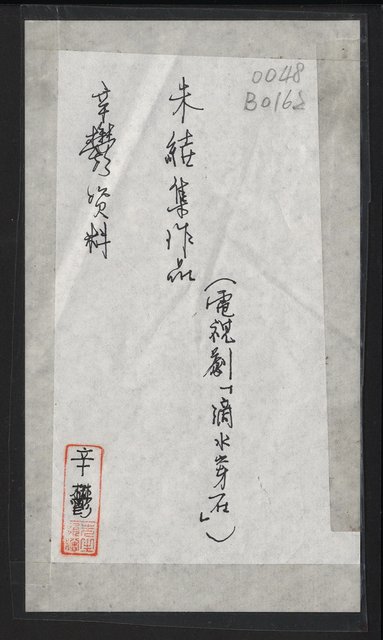 0048
B0162
未結集作品
(電視劇「滴水穿石」)
辛鬱資料
辛鬱